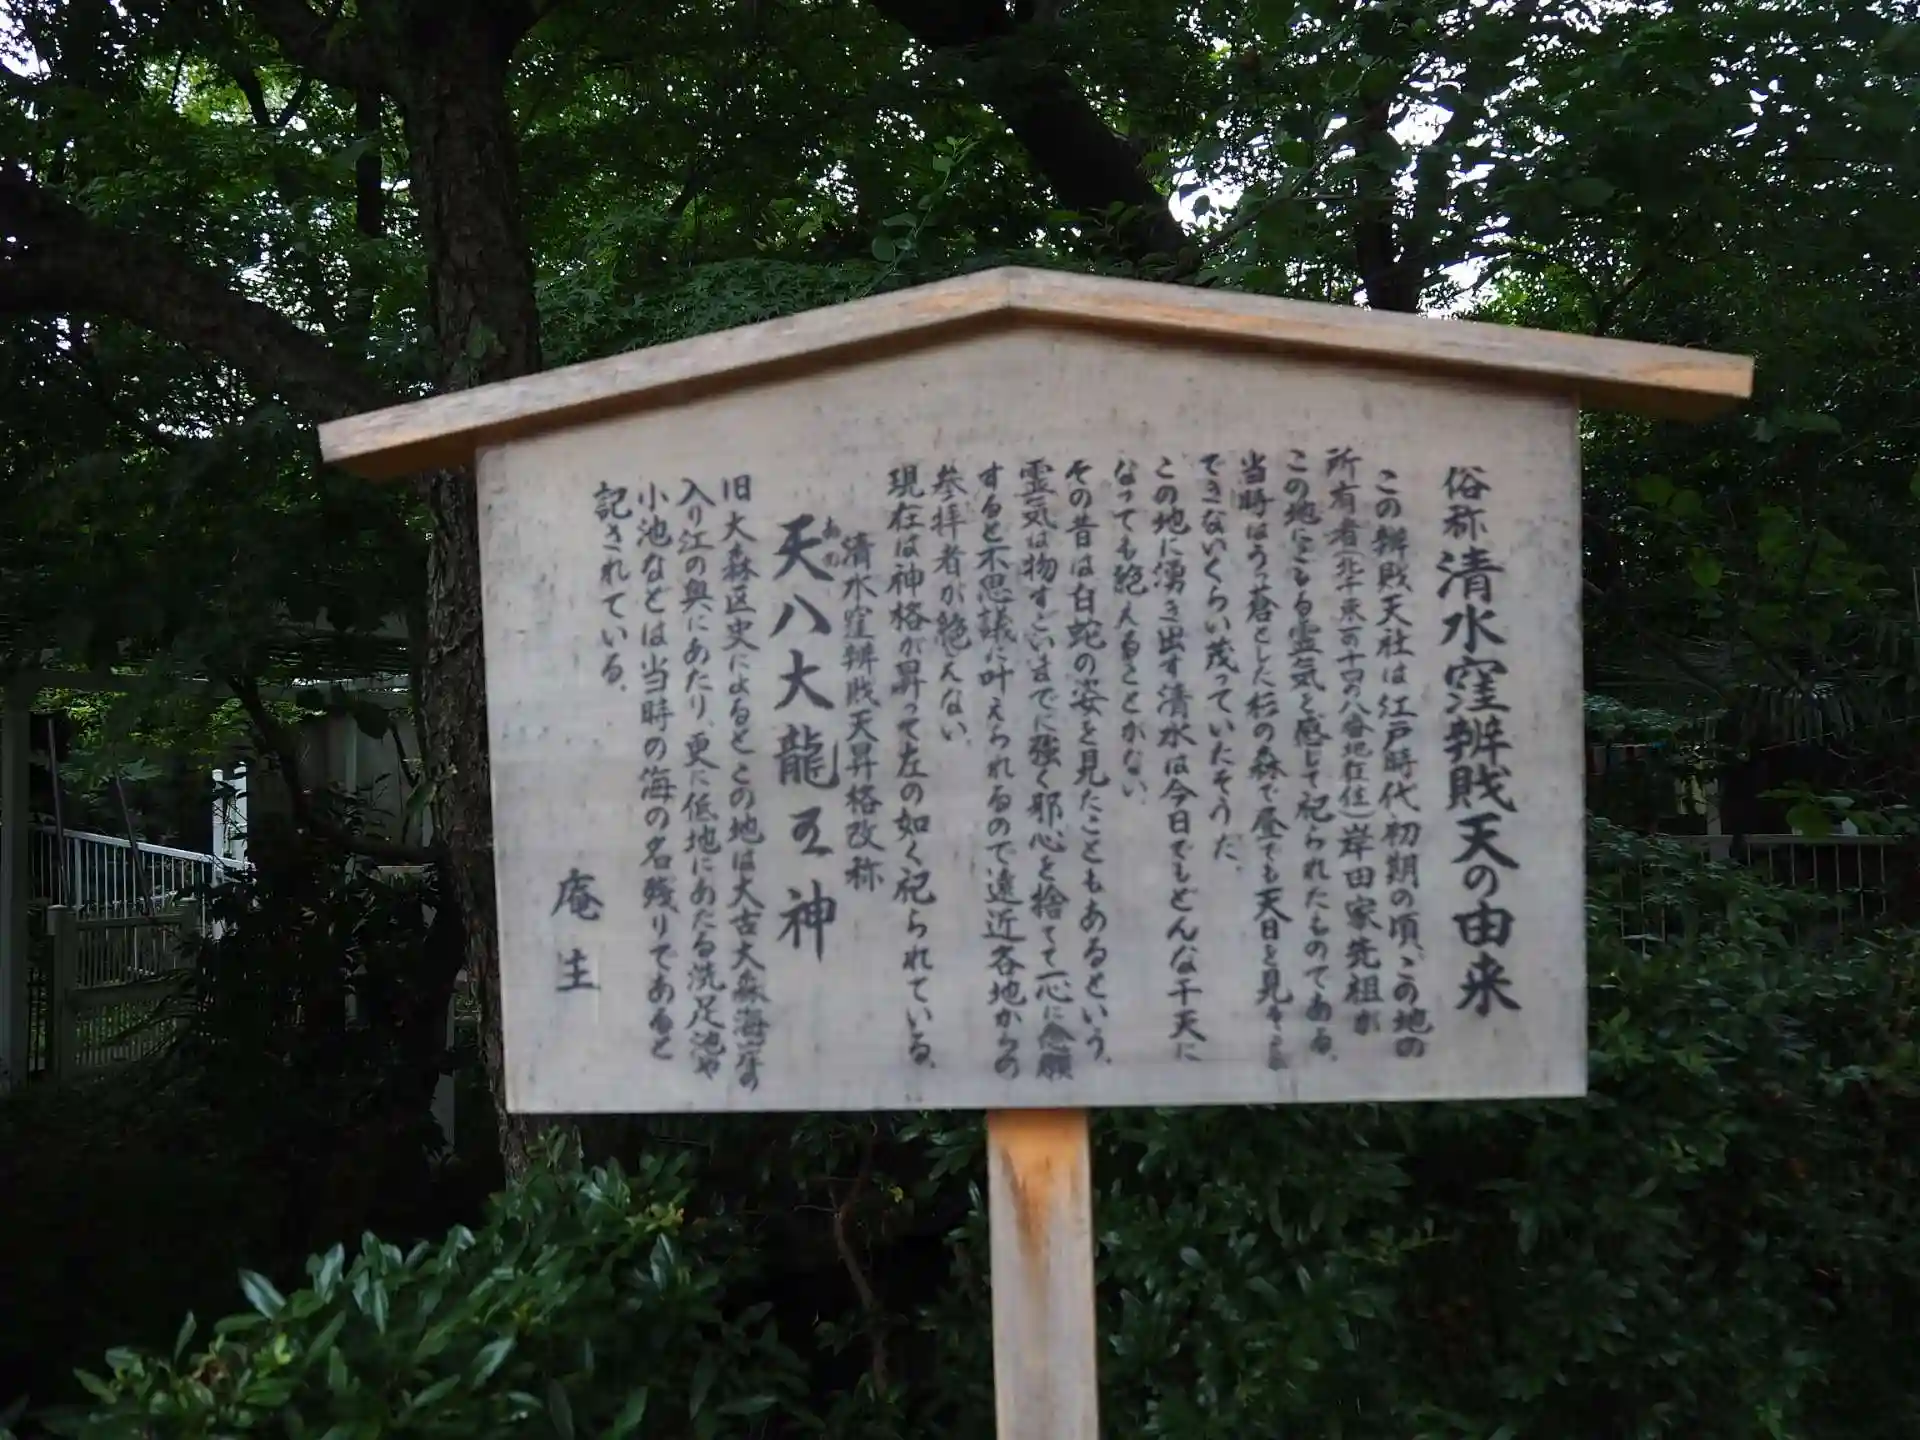 俗称 清水窪辨賎天の由来
この辨賎天社は江戸時代初期の頃、この地の
所有者(北千束一の十四の八番地在住)岸田家先祖が
この地にこもる霊気を感じて祀られたものである、
当時はうっ蒼とした杉の森で昼でも天日を見ること
できないくらい茂っていたそうだ、
この地に湧き出す清水は今日でもどんな干天に
なっても絶えることがない、
その昔は白蛇の姿を見たこともあるという、
霊気は物すごいまでに強く邪心を捨てて一心に念願
すると不思議に叶えられるので遠近各地からの
参拝者が絶えない、
現在は神格が昇って左の如く祀られている、
清水窪辨賎天昇格改称
あの
天八大龍王神
旧大森区史によるとこの地は大古大森海岸の
入り江の奥にあたり、更に低地にあたる洗足池や
小池などは当時の海の名残りであると
記されている、
庵主